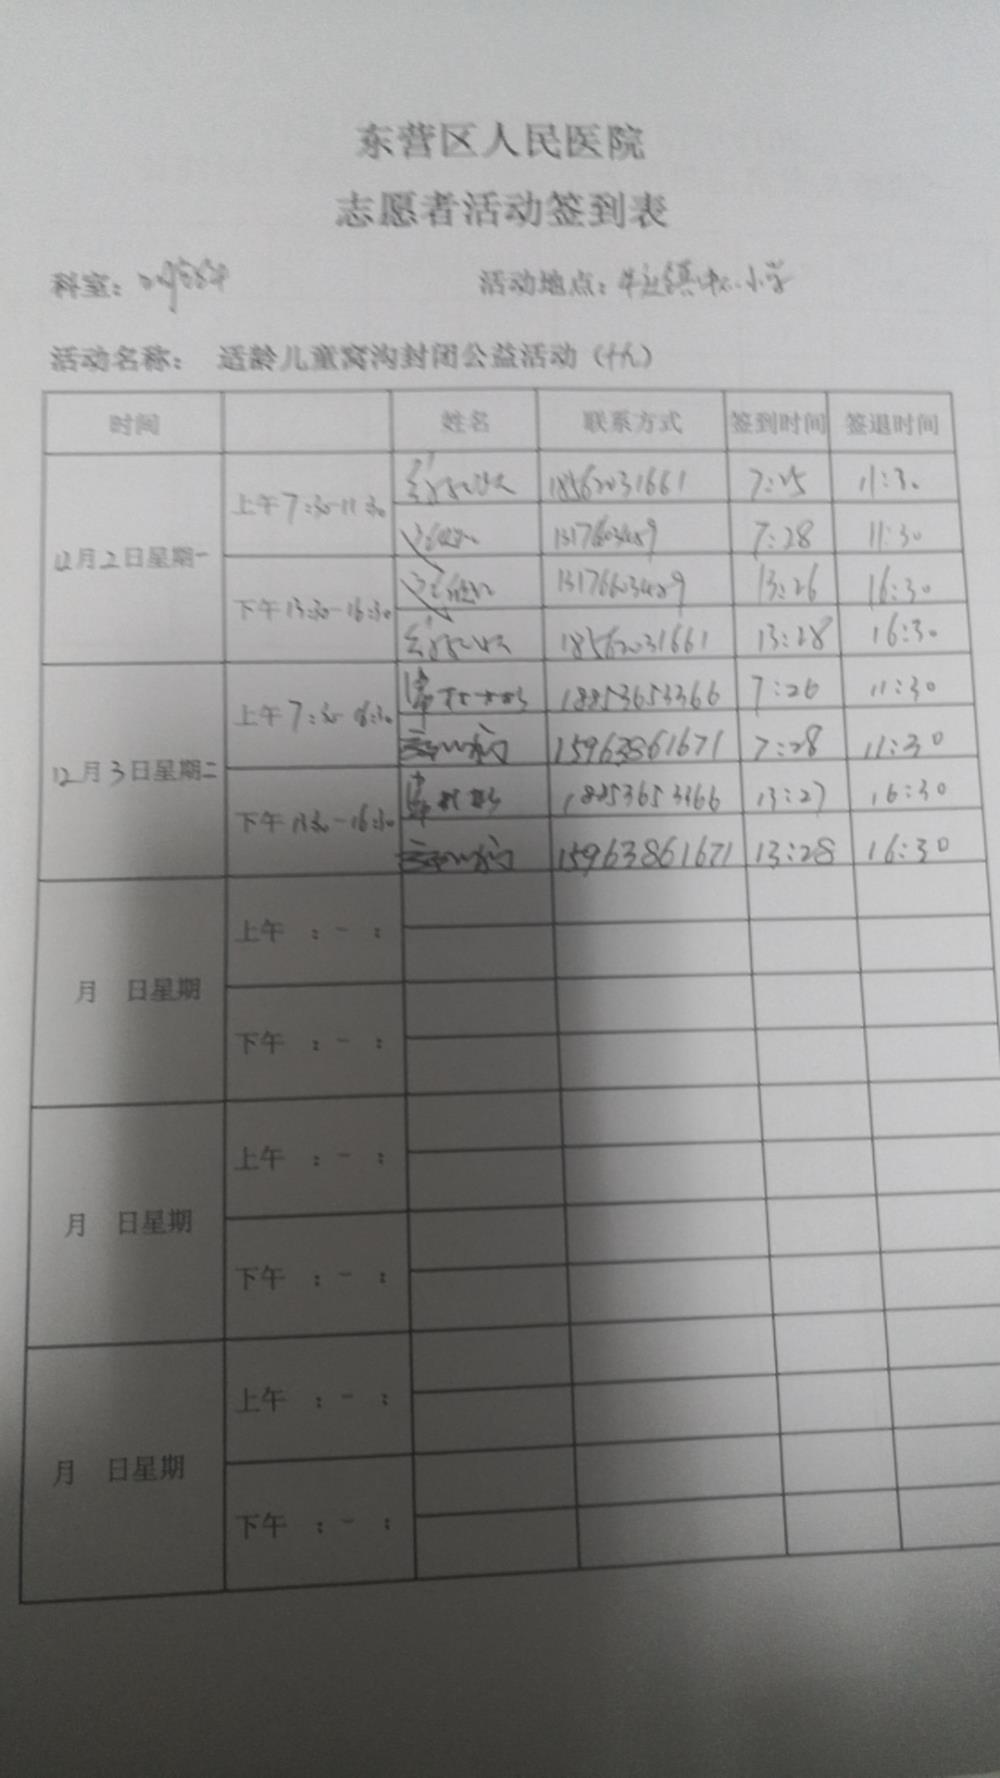 东营区人民医院
志愿者活动签到表
科室：
活动地点：牛庄镇中心小学
活动名称： 适龄儿童窝沟封闭公益活动（十九）
时间 姓名 联系方式 签到时间 签退时间
12月2日星期一
上午7:30-11:30
18562031661 7:25 11:30
13176603489 7:28 11:30
下午13:30-16:30
13176603489 13:26 16:30
18562031661 13:28 16:30
12月3日星期二
上午7:30-
18853653366 7:26 11:30
15963861671 7:28 11:30
下午13:30-16:30
18853653366 13:27 16:30
15963861671 13:28 16:30
月 日星期
上午 : - :
下午 : - :
月 日星期
上午 : - :
下午 : - :
月 日星期
上午 : - :
下午 : - :